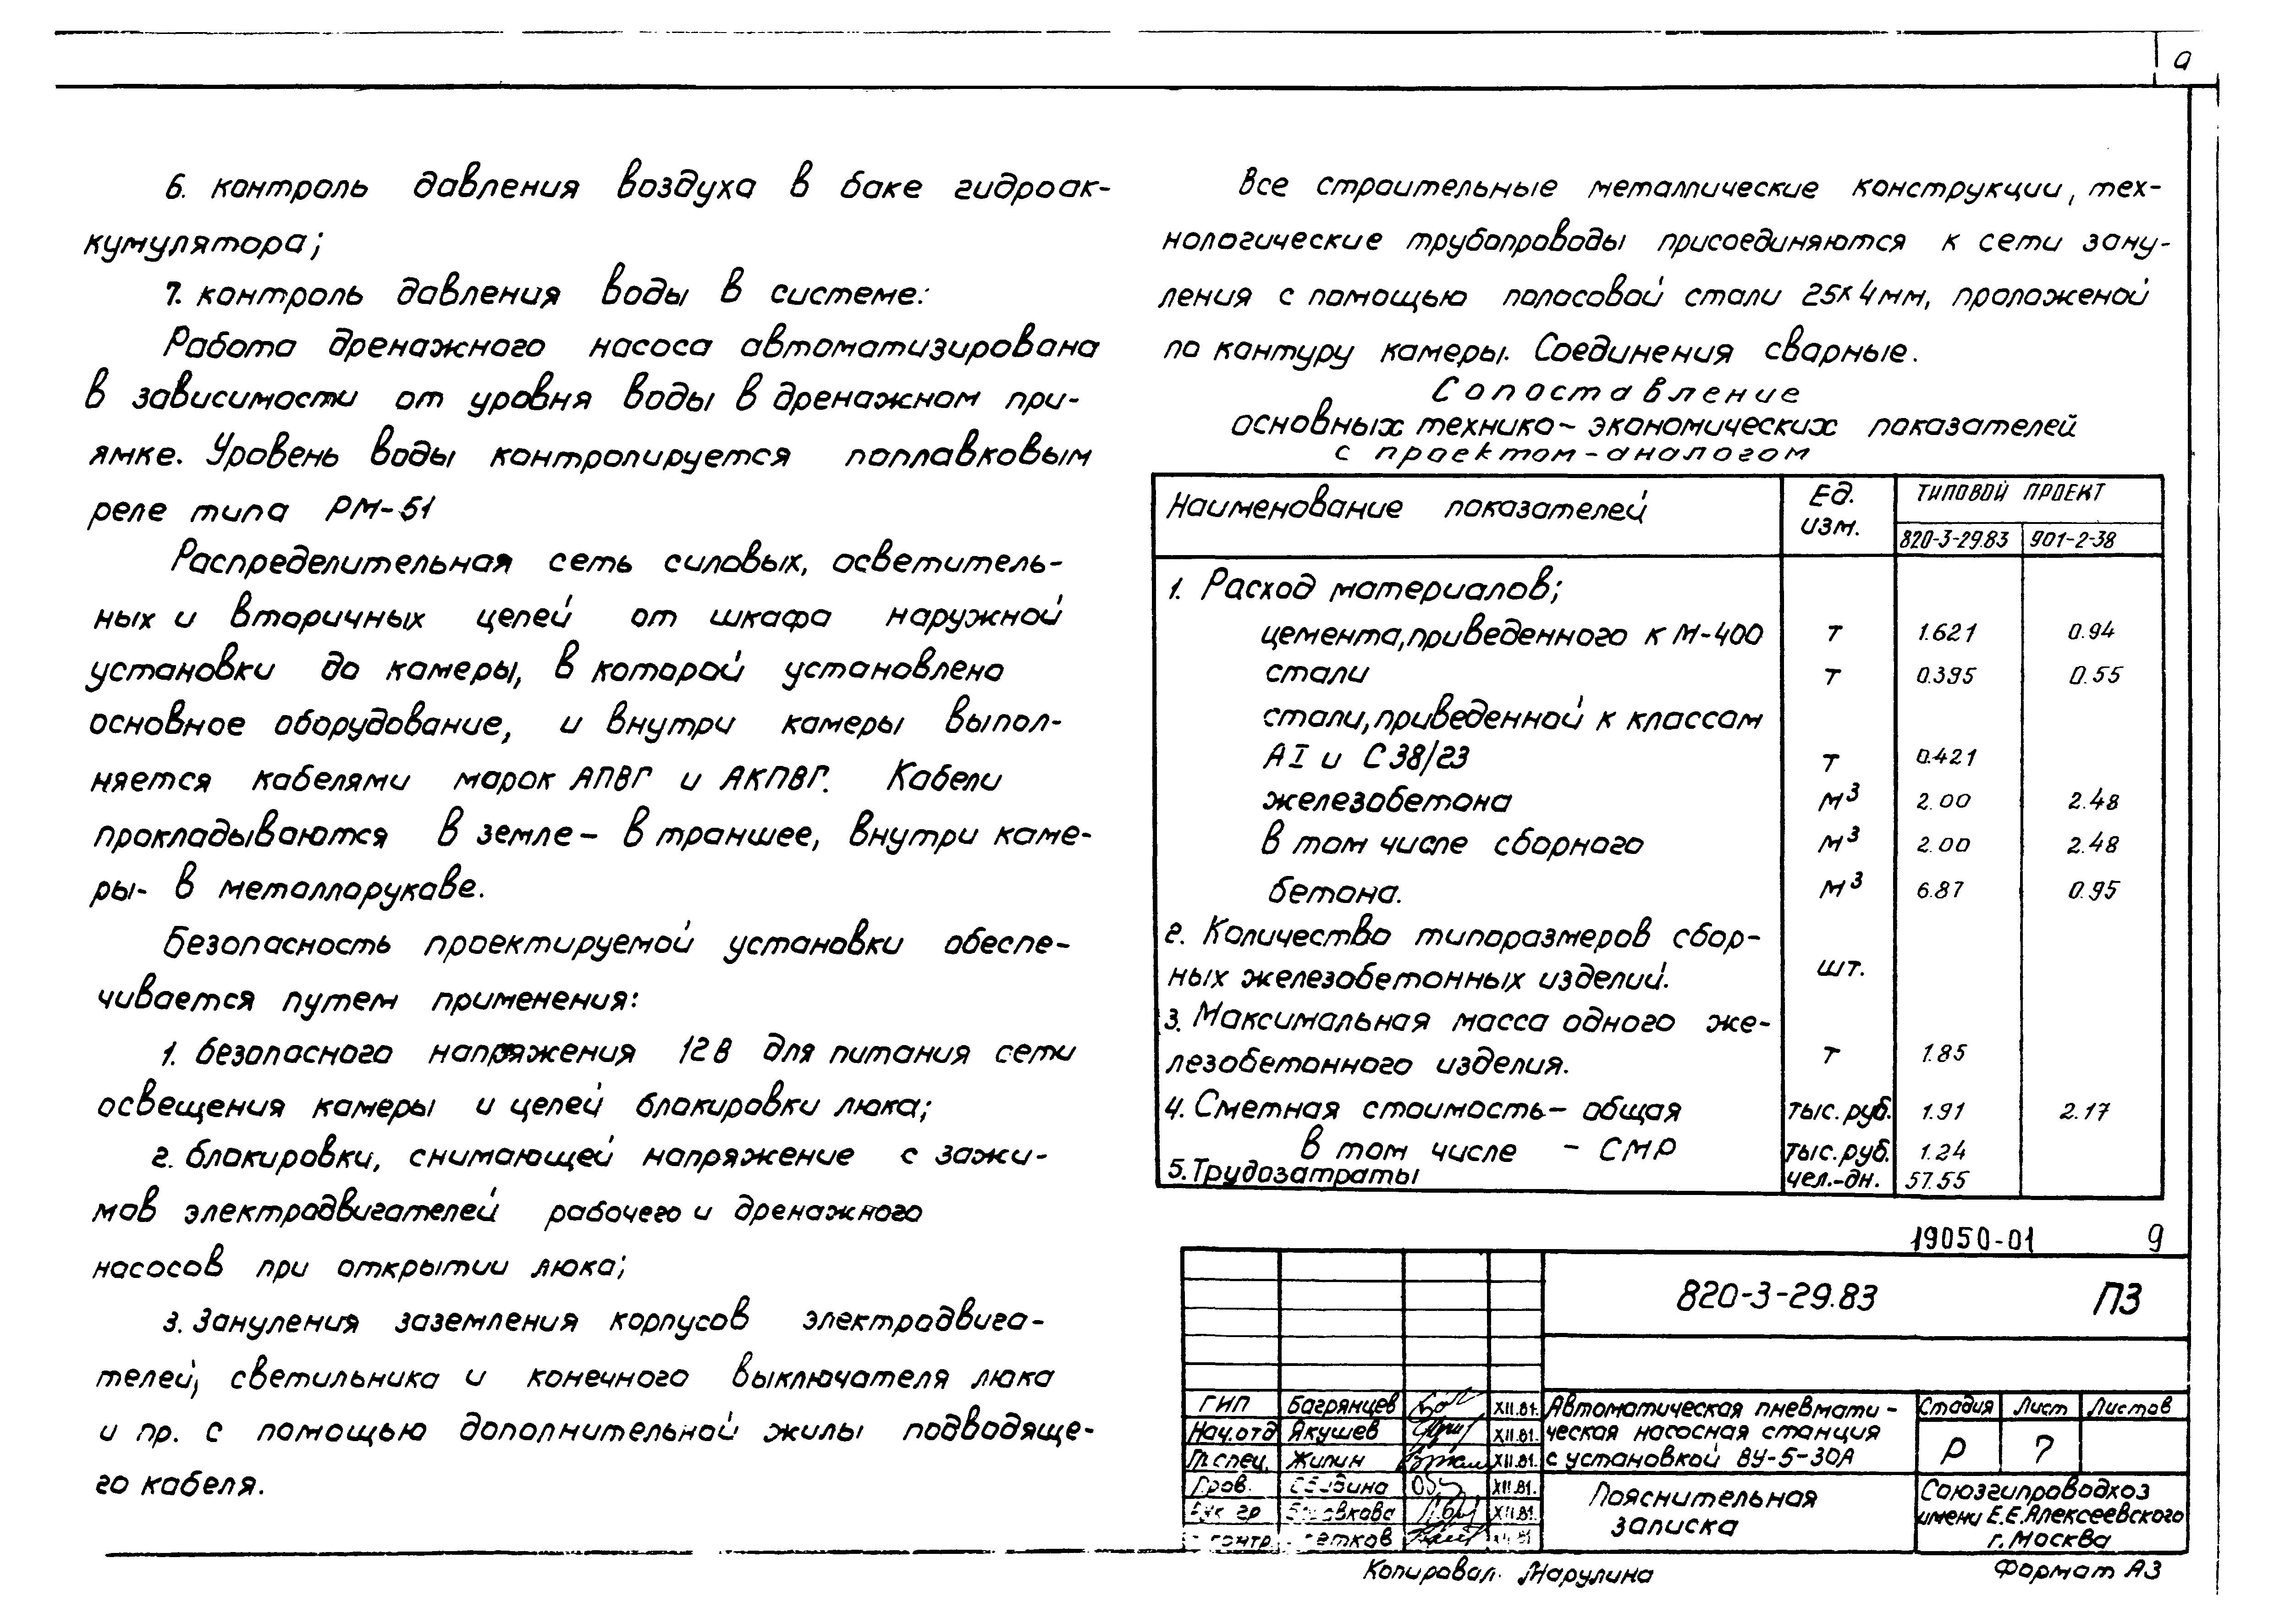 6. контроль давления воздуха в баке гидроак-
кумулятора;
7. контроль давления воды в системе:
Работа дренажного насоса автоматизирована
в зависимости от уровня воды в дренажном при-
ямке. Уровень воды контролируется поплавковым
реле типа РМ-51
Распределительная сеть силовых, осветитель-
ных и вторичных цепей от шкафа наружной
установки до камеры, в которой установлено
основное оборудование, и внутри камеры выпол-
няется кабелями марок АПВГ и АКПВГ. Кабели
прокладываются в земле - в траншее, внутри каме-
ры- в металлорукаве.
Безопасность проектируемой установки обеспе-
чивается путем применения:
1. безопасного напряжения 12В для питания сети
освещения камеры и цепей блокировки люка;
2. блокировки, снимающей напряжение с зажи-
мов электродвигателей рабочего и дренажного
насосов при открытии люка;
3. Зануления заземления корпусов электродвига-
телей, светильника и конечного выключателя люка
и пр. с помощью дополнительной жилы подводяще-
го кабеля.
Все строительные металлические конструкции, тех-
нологические трубопроводы присоединяются к сети зану-
ления с помощью полосовой стали 25х4мм, проложеной
по контуру камеры. Соединения сварные.
Сопоставление
основных технико-экономических показателей
с проектом-аналогом
Наименование показателей Ед. изм. ТИПОВОЙ ПРОЕКТ
820-3-29.83 901-2-38
1. Расход материалов;
цемента, приведенного к М-400 т 1.621 0.94
стали т 0.395 0.55
стали, приведенной к классам
АI и С38/23 т 0.421
железобетона м3 2.00 2.48
в том числе сборного м3 2.00 2.48
бетона. м3 6.87 0.95
2. Количество типоразмеров сбор-
ных железобетонных изделий. шт.
3. Максимальная масса одного же-
лезобетонного изделия. т 1.85
4. Сметная стоимость - общая тыс.руб. 1.91 2.17
в том числе - СМР тыс.руб. 1.24
5. Трудозатраты чел.-дн. 57.55
19050-01 9
820-3-29.83 ПЗ
ГИП Багрянцев XII.81.
Нач.отд Якушев XII.81.
Гл.спец. Жилин XII.81.
Пров. XII.81.
Рук гр XII.81.
Автоматическая пневмати-
ческая насосная станция
с установкой ВУ-5-30А
Стадия Лист Листов
Р 7
Пояснительная
записка
Союзгипроводхоз
имени Е.Е.Алексеевского
г.Москва
Копировал: Марулина Формат А3